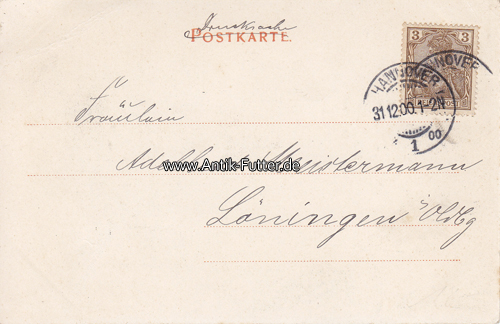 Drucksache
POSTKARTE.
3 3
HANNOVER HANNOVER
31.12.00.1-2N
1 00
Fräulein
www.Antik-Futter.de
Mustermann
Löningen Oldbg